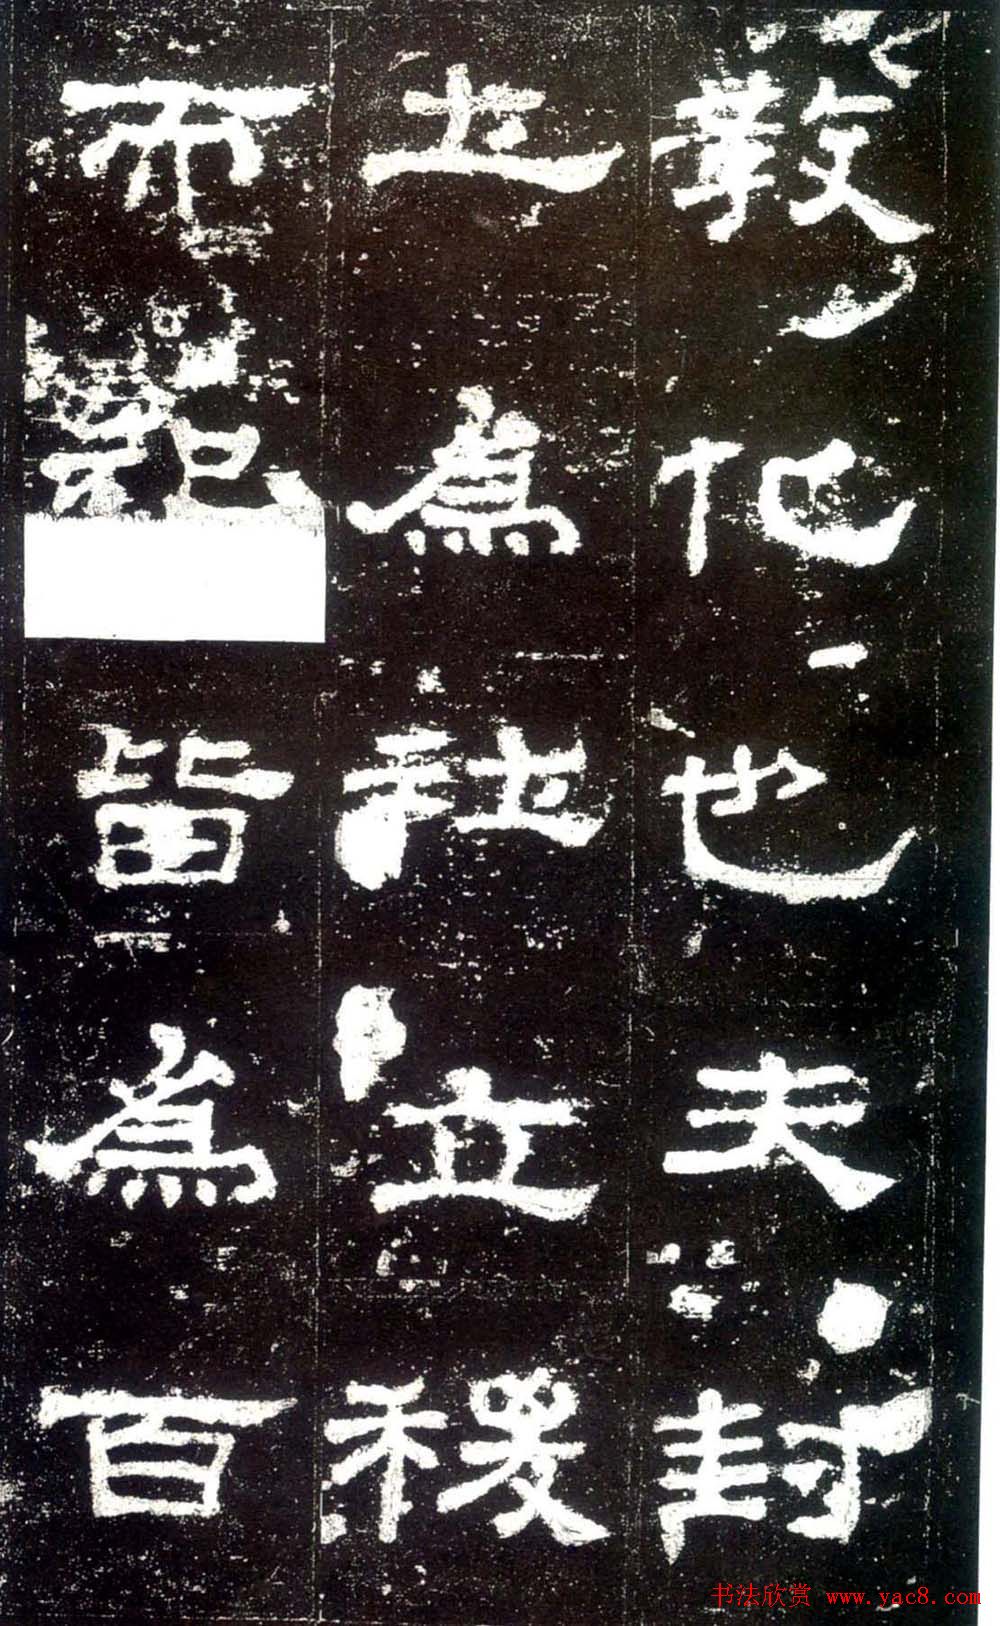 教化也夫封
土為社立稷
而祀皆為百
书法欣赏 www.yac8.com